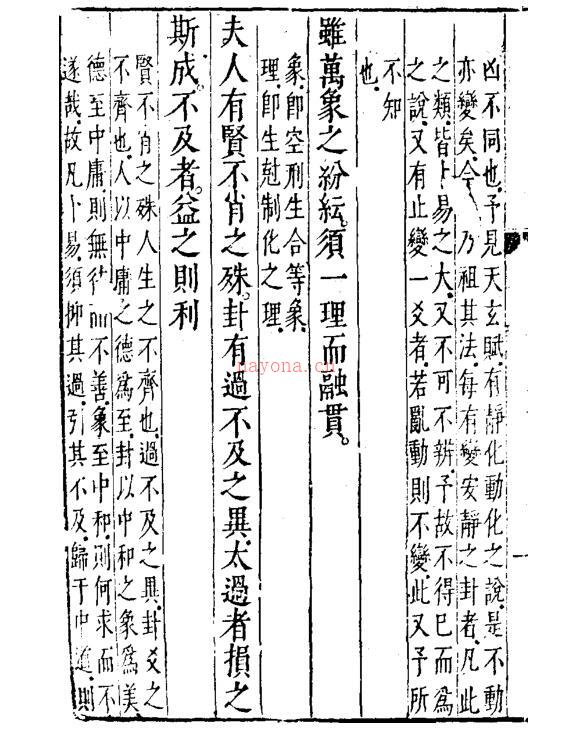 凶不同也予見天玄賦有靜化動化之說是不動
亦變矣今乃祖其法每有變安靜之卦者凡此
之類皆卜易之大又不可不辨予故不得已而為
之說又有止變一爻者若亂動則不變此又予所
不知
也
雖萬象之紛紜須一理而融貫
象即空刑生合等象
理即生尅制化之理
夫人有賢不肖之殊卦有過不及之異太過者損之
斯成不及者益之則利
賢不肖之殊人生之不齊也過不及之異卦爻之
不齊也人以中庸之德爲至卦以中和之象爲美
德至中庸則無往而不善象至中和則何求而不
遂哉故凡卜易須抑其過引其不及歸于中道則
nayona.cn